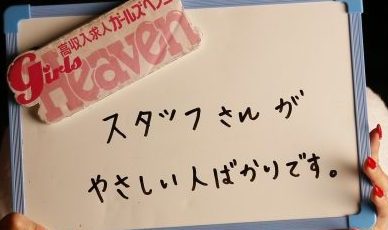 高収入求人ガールズヘブン
Girls
Heaven
スタッフさんが
やさしい人ばかりです。